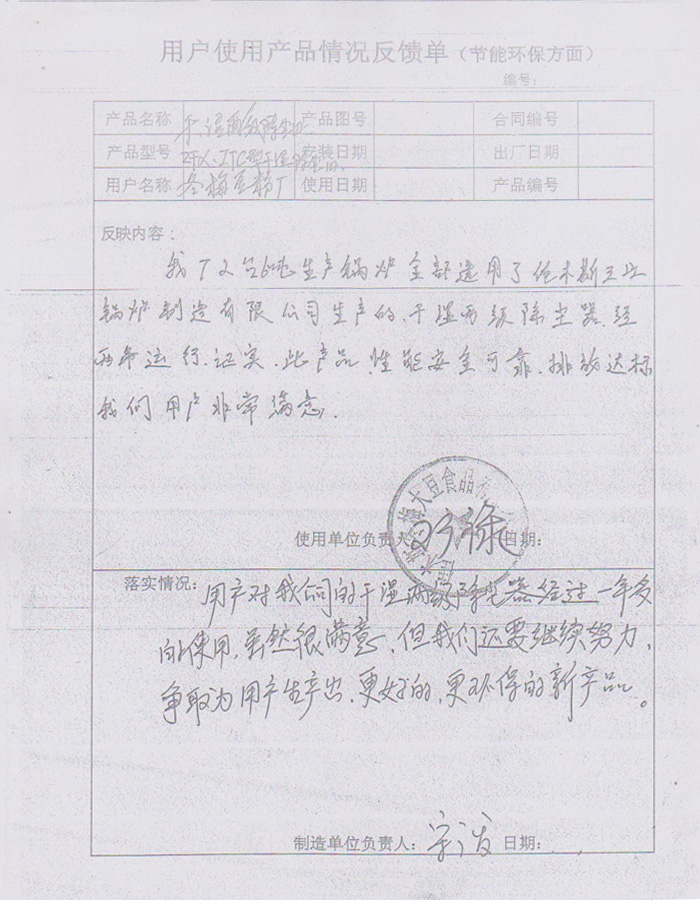 用户使用产品情况反馈单（节能环保方面）
编号：
产品名称 干湿两级除尘 产品图号 合同编号
产品型号 安装日期 出厂日期
用户名称 冬梅豆粉厂 使用日期 产品编号
反映内容：
我厂2台6吨生产锅炉全部选用了佳木斯
锅炉制造有限公司生产的、干湿两级除尘器、经
两年运行、证实、此产品、性能安全可靠、排放达标
我们用户非常满意、
大豆食品
使用单位负责人 日期：
落实情况：用户对我公司的干湿两级除尘器经过一年多
的使用，虽然很满意、但我们还要继续努力、
争取为用户生产出、更好的、更环保的新产品。
制造单位负责人： 日期：